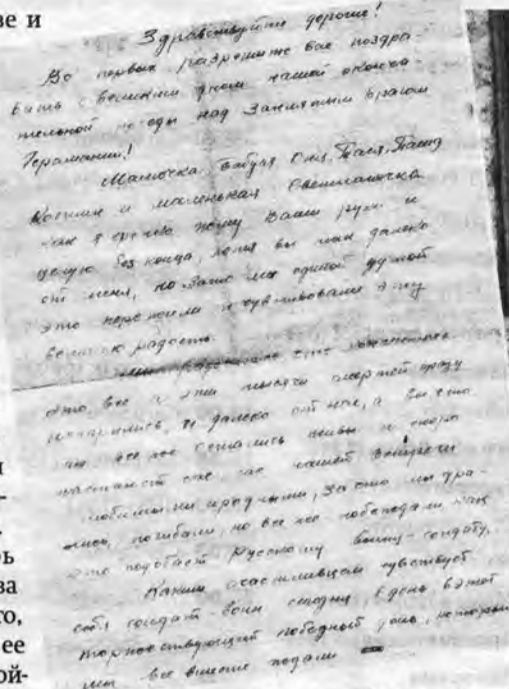 зе и
Здравствуйте дорогие!
Во первых разрешите вас поздра-
вить с великим днем нашей оконча-
тельной победы над Заклятым врагом
Германии!
Мамочка, бабуля Тася, Паша
и маленькая Светланочка
как я крепко жму Ваши руки и
целую без конца, хотя вы так далеко
от меня, но зато мы единой думой
это пережили и чувствовали эту
великую радость.
все и эти тысячи смертей сразу
и далеко от нас, а
все же остались живы и скоро
настанет час нашей встречи
с любимыми и родными, за что мы дра-
лись, погибали, но все же побеждали как
это подобает Русскому воину-солдату.
Каким счастливцем чувствует
себя солдат-воин сегодня в день в этот
торжествующий победный день, который
мы все вместе
рь
за
то,
ее
ой-